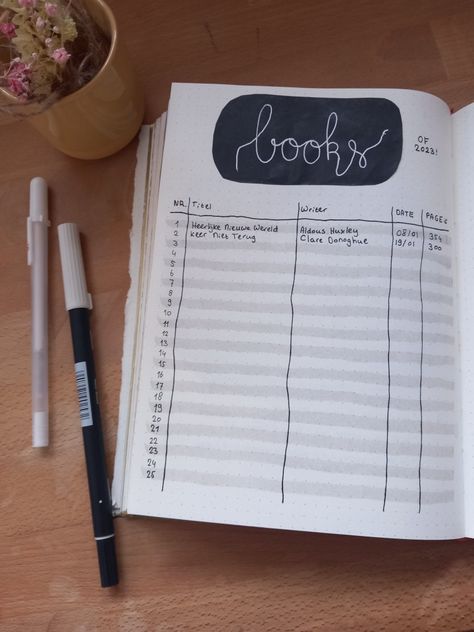 books
OF
2023!
NR Titel Writer DATE PAGE's
1 Heerlijke Nieuwe Wereld Aldous Huxley 08/01 354
2 Keer Niet Terug Clare Donoghue 19/01 300
3
4
5
6
7
8
9
10
11
12
13
14
15
16
17
18
19
20
21
22
23
24
25